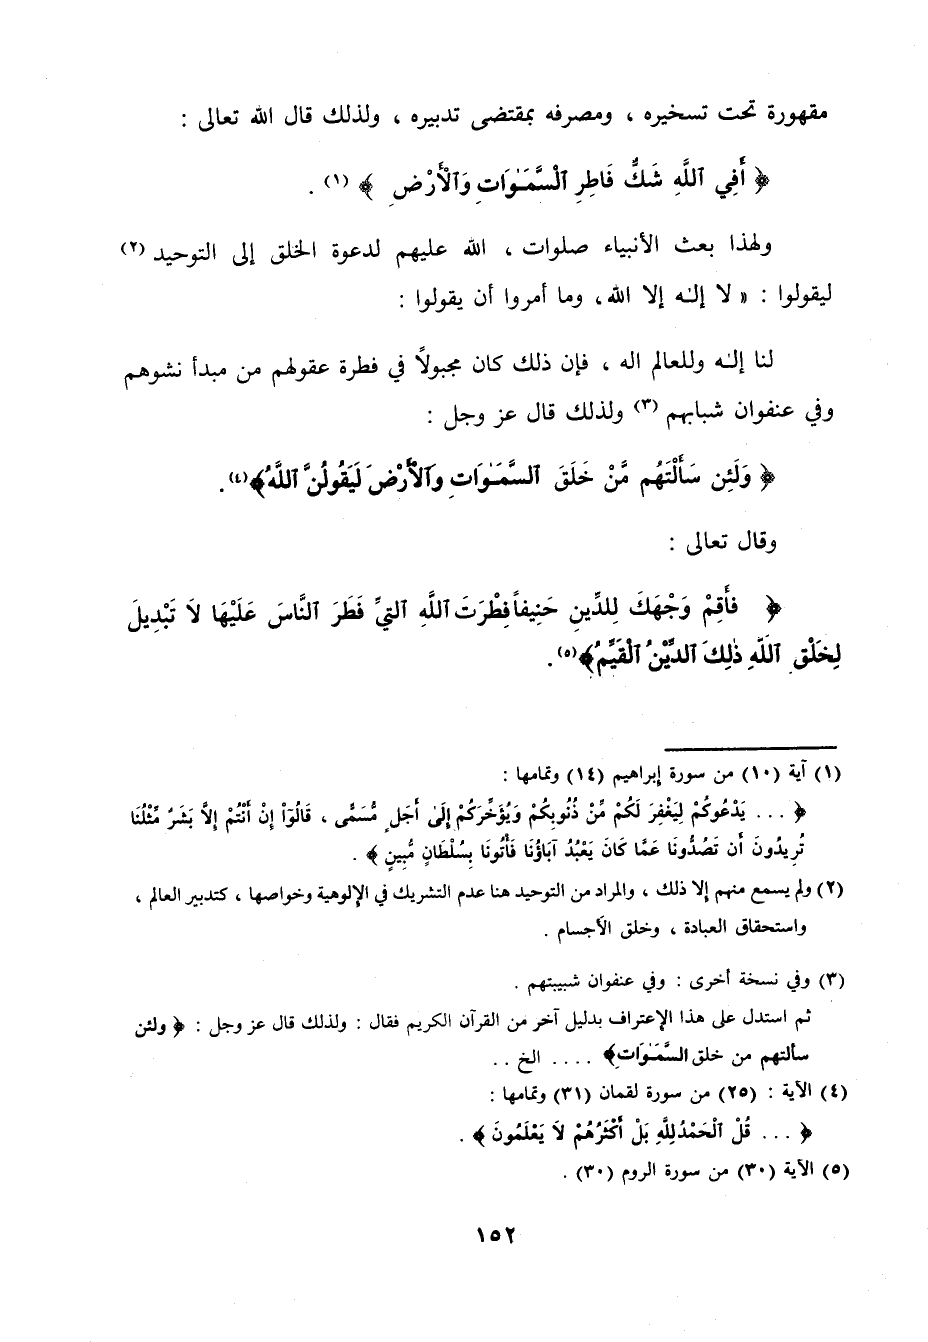 مقهورة تحت تسخيره ، ومصرفه بمقتضى تدبيره ، ولذلك قال الله تعالى :
﴿ أَفِي ٱللَّهِ شَكٌّ فَاطِرِ ٱلْسَّمَـٰوَاتِ وَٱلْأَرْضِ ﴾ (١) .
ولهذا بعث الأنبياء صلوات ، الله عليهم لدعوة الخلق إلى التوحيد (٢)
ليقولوا : « لا إلـٰه إلا الله ، وما أمروا أن يقولوا :
لنا إلـٰه وللعالم اله ، فإن ذلك كان مجبولاً في فطرة عقولهم من مبدأ نشوهم
وفي عنفوان شبابهم (٣) ولذلك قال عز وجل :
﴿ وَلَئِن سَأَلْتَهُم مَّنْ خَلَقَ ٱلسَّمَـٰوَاتِ وَٱلْأَرْضَ لَيَقُولُنَّ ٱللَّهُ﴾(٤) .
وقال تعالى :
﴿ فأَقِمْ وَجْهَكَ لِلدِّينِ حَنِيفاً فِطْرَتَ ٱللَّهِ ٱلتيِّ فَطَرَ ٱلنَّاسَ عَلَيْهَا لاَ تَبْدِيلَ
لِخَلْقِ ٱللَّهِ ذٰلِكَ ٱلدِّيْنُ ٱلْقَيِّمُ﴾(٥) .
(١) آية (١٠) من سورة إبراهيم (١٤) وتمامها :
﴿ ... يَدْعُوكُمْ لِيَغْفِرَ لَكُم مِّنْ ذُنُوبِكُمْ وَيُؤَخِّرَكُمْ إِلَىٰ أَجَلٍ مُّسَمًّى ، قَالُوٓاْ إِنْ أَنْتُمْ إِلاَّ بَشَرٌ مِّثْلُنَا
تُرِيدُونَ أَن تَصُدُّونَا عَمَّا كَانَ يَعْبُدُ آبَاؤُنَا فَأْتُونَا بِسُلْطَانٍ مُّبِينٍ ﴾ .
(٢) ولم يسمع منهم إلا ذلك ، والمراد من التوحيد هنا عدم التشريك في الإلوهية وخواصها ، كتدبير العالم ،
واستحقاق العبادة ، وخلق الأجسام .
(٣) وفي نسخة أخرى : وفي عنفوان شبيبتهم .
ثم استدل على هذا الإعتراف بدليل آخر من القرآن الكريم فقال : ولذلك قال عز وجل : ﴿ ولئن
سألتهم من خلق السَّمَـٰوَاتِ﴾ .... الخ ..
(٤) الآية : (٢٥) من سورة لقمان (٣١) وتمامها :
﴿ ... قُلْ ٱلْحَمْدُ لِلَّهِ بَلْ أَكْثَرُهُمْ لاَ يَعْلَمُونَ ﴾ .
(٥) الآية (٣٠) من سورة الروم (٣٠) .
١٥٢